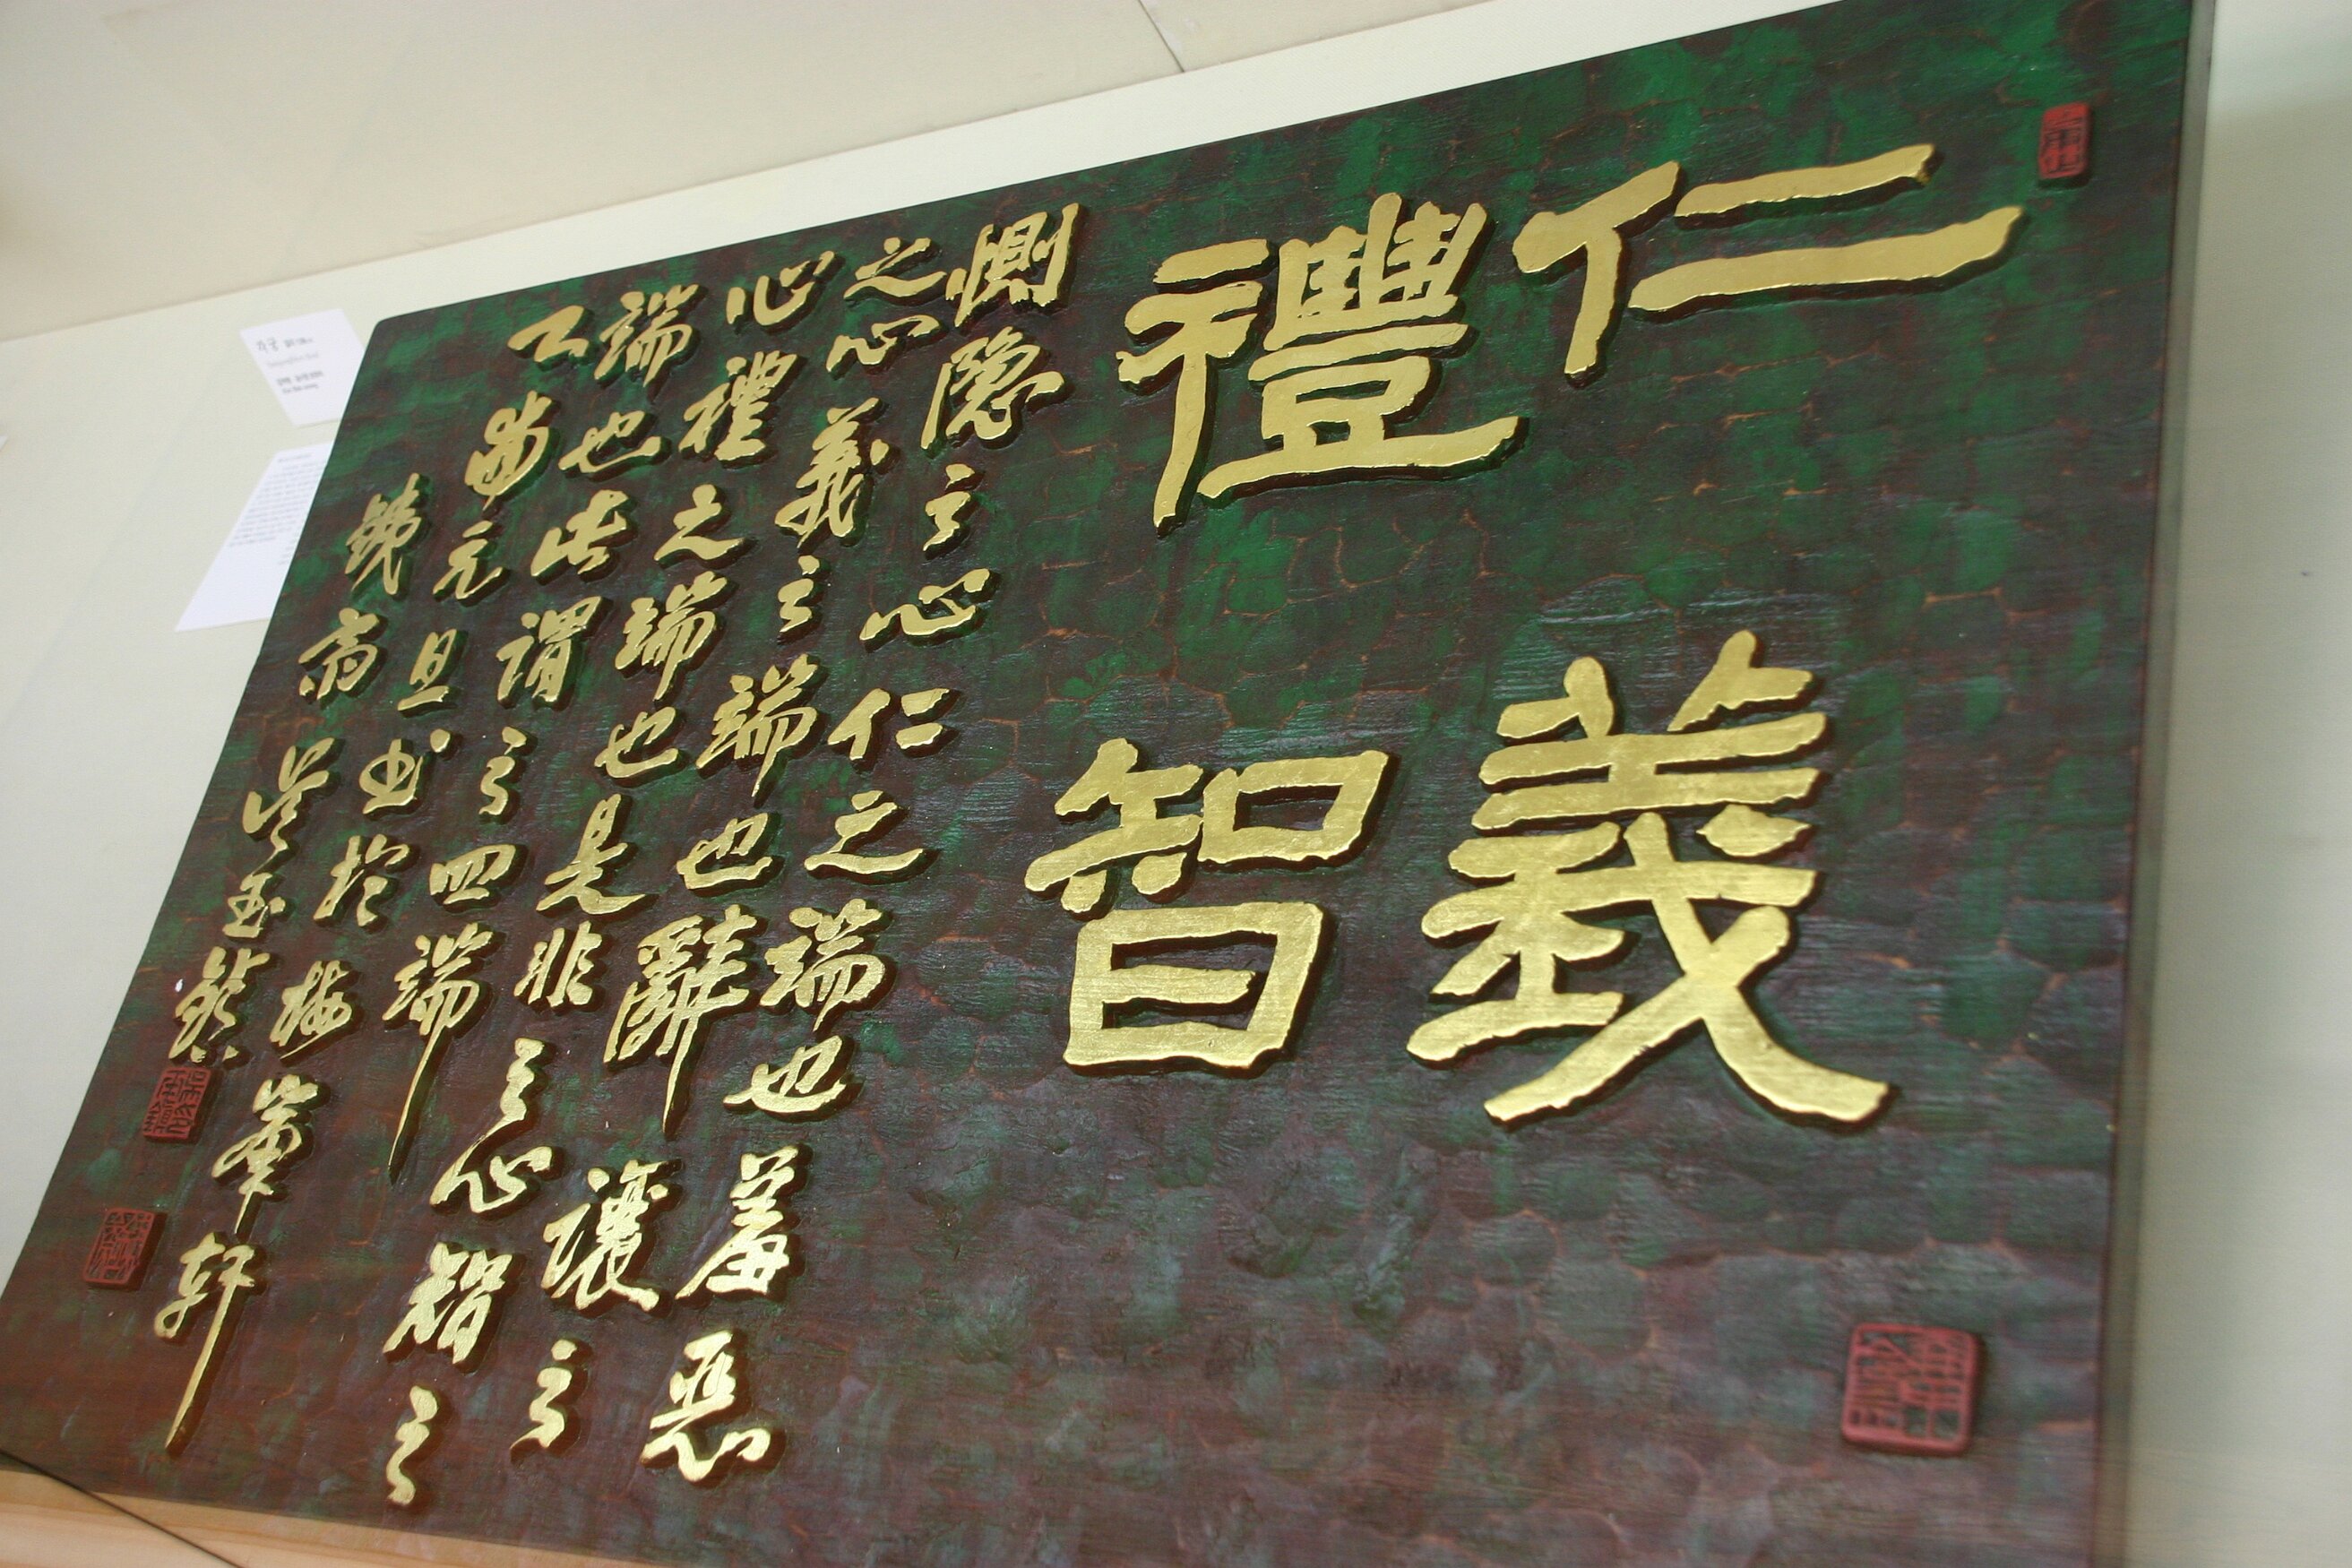 仁義
禮智
惻隱之心仁之端也羞惡
之心義之端也辭讓之
心禮之端也是非之心智之
端也此謂之四端
乙酉元旦書於梅華軒
鐵齋吳玉